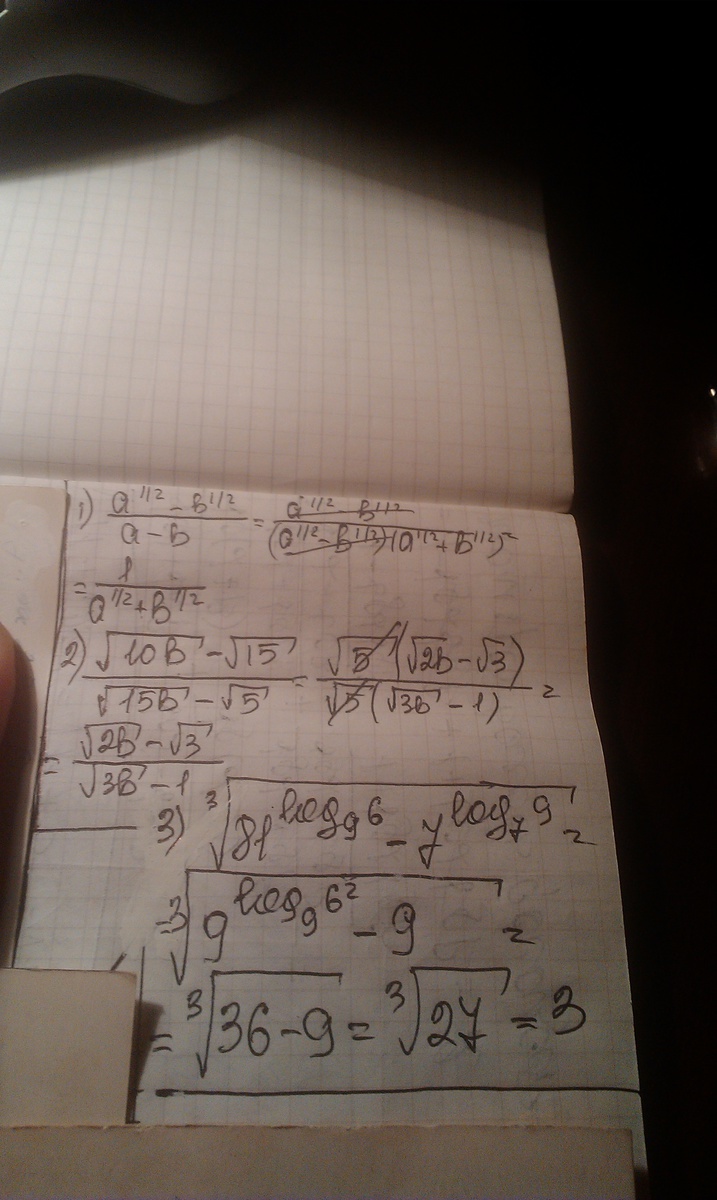 1) (a^1/2 - в^1/2)/(a - в) = (a^1/2 - в^1/2)/((a^1/2 - в^1/2)(a^1/2 + в^1/2)) =
= 1/(a^1/2 + в^1/2)
2) (√10в - √15)/(√15в - √5) = (√5(√2в - √3))/(√5(√3в - 1)) =
= (√2в - √3)/(√3в - 1)
3) ∛(81^log₉6 - 7^log₇9) =
= ∛(9^log₉6² - 9) =
= ∛(36 - 9) = ∛27 = 3